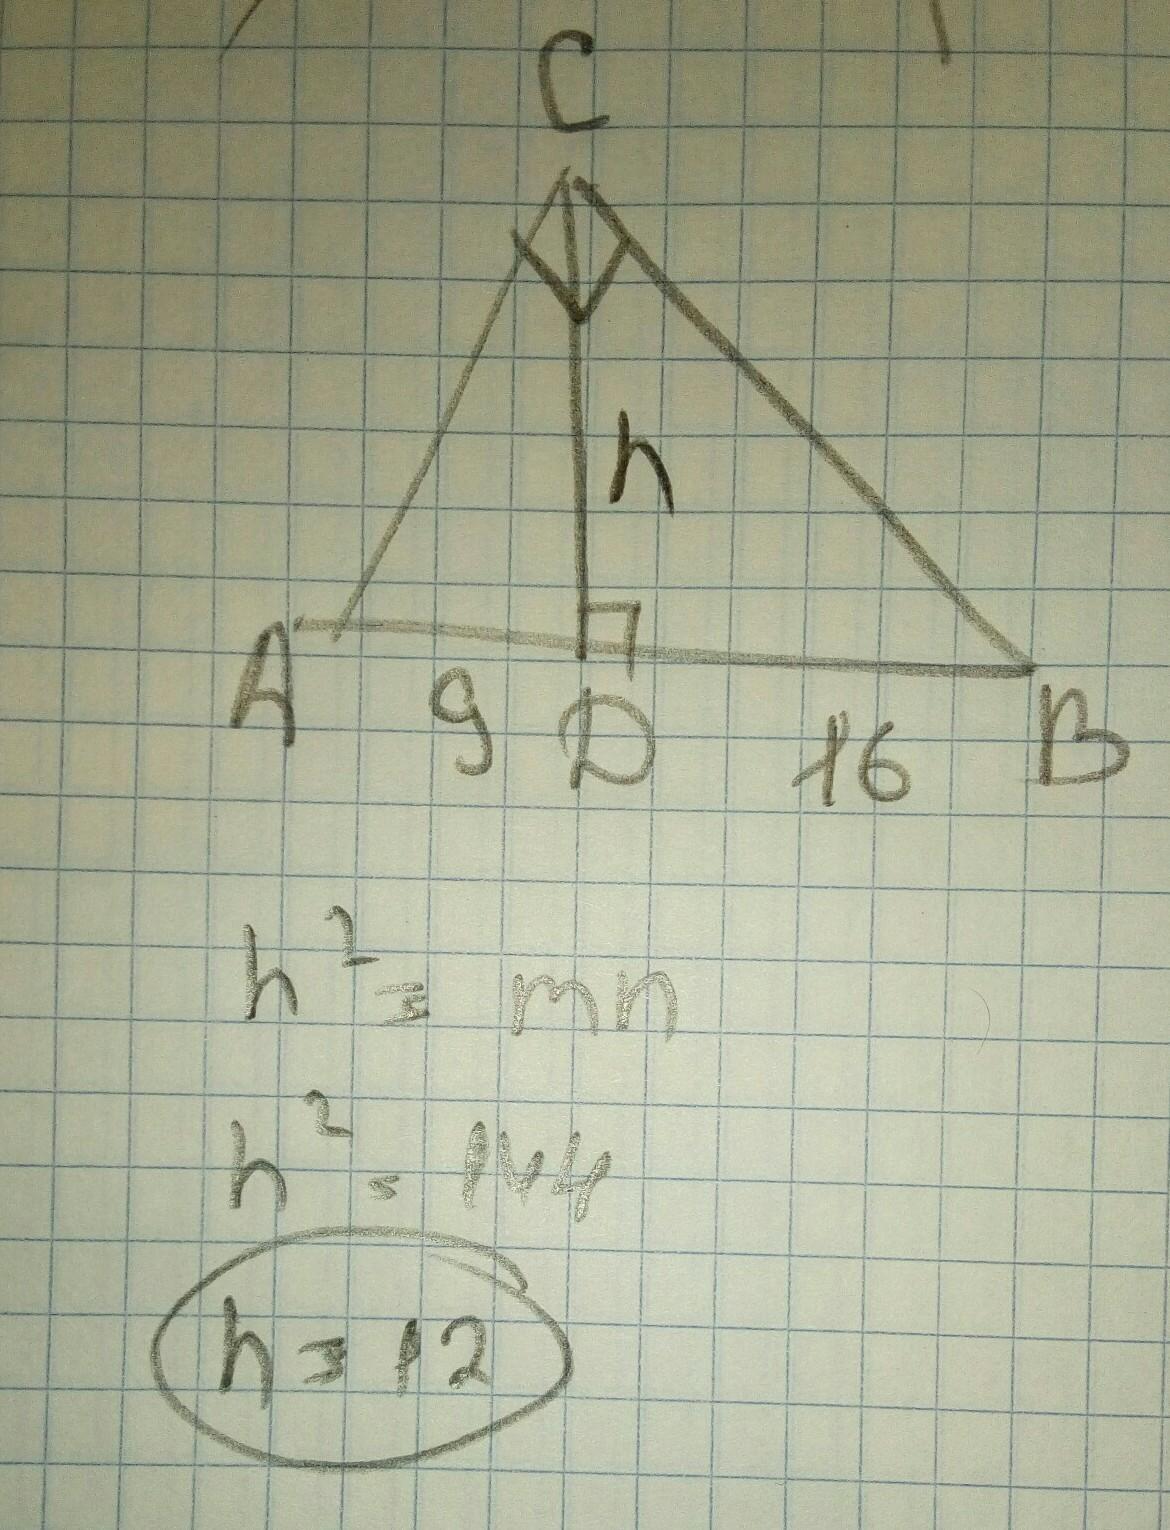 C
h
A 9 D 16 B
h² = mn
h² = 144
h = 12